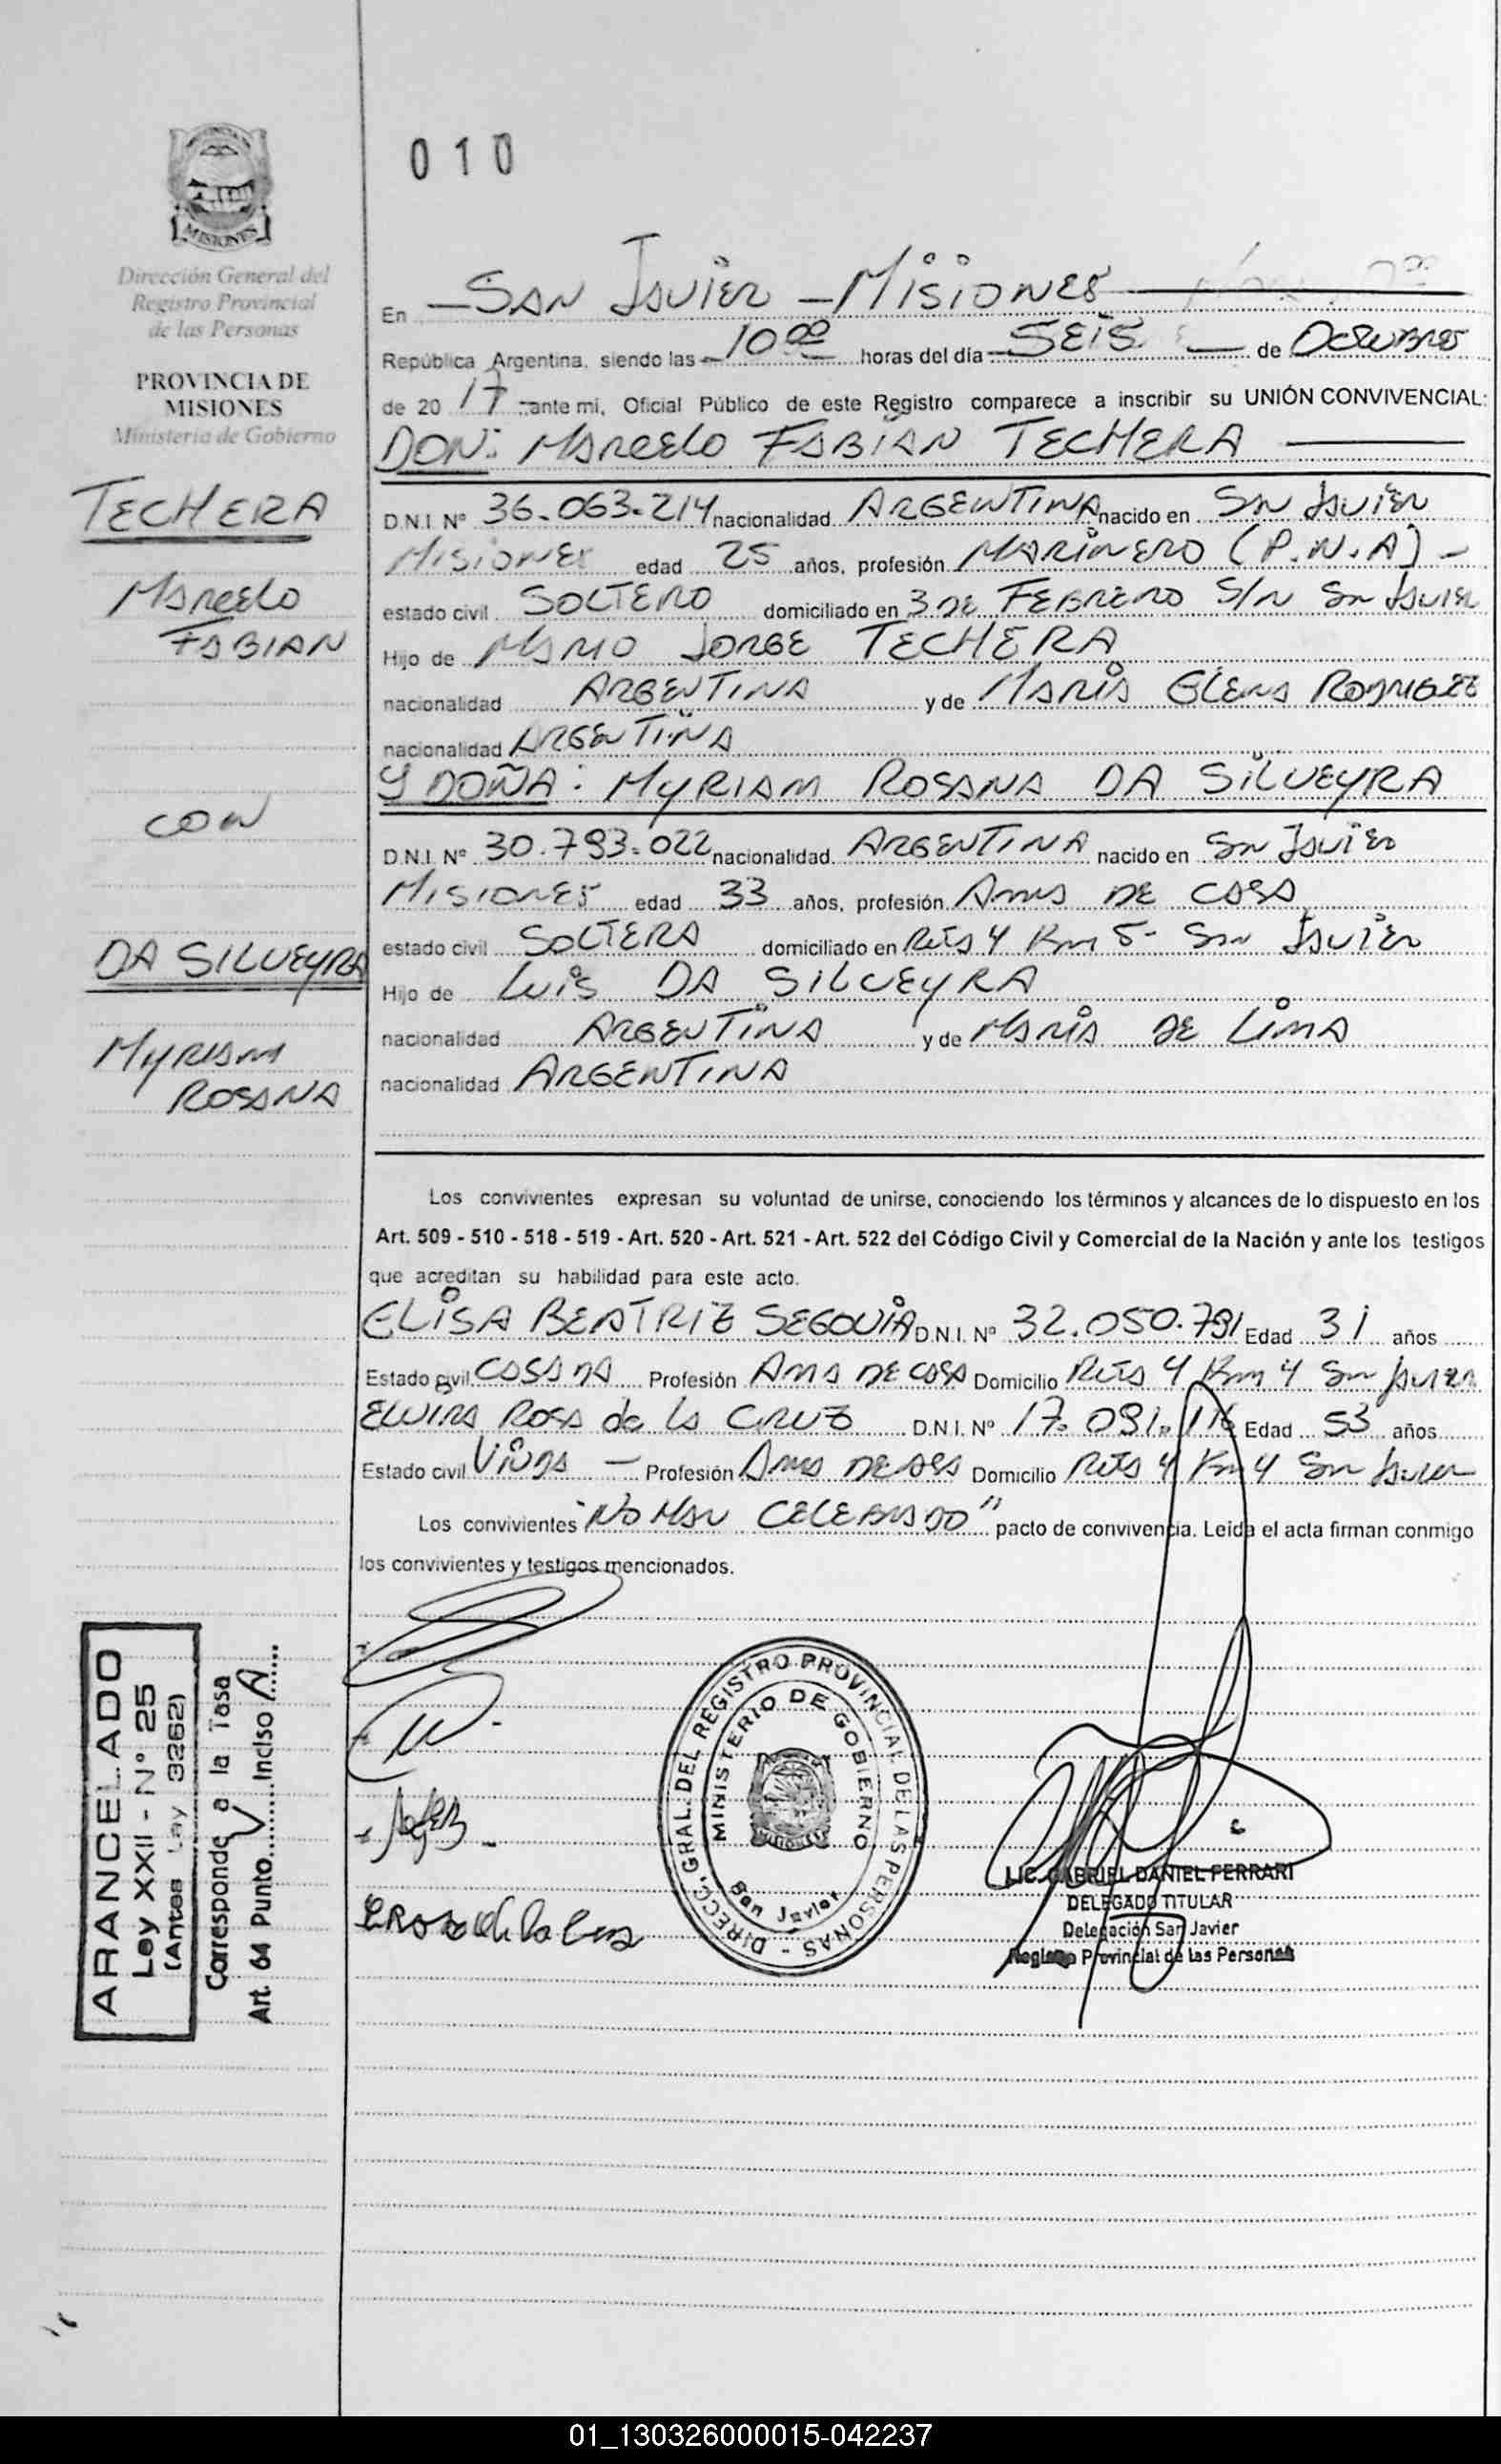 010
MISIONES
Dirección General del
Registro Provincial
de las Personas
PROVINCIA DE
MISIONES
Ministerio de Gobierno
TECHERA
MARCELO
FABIAN
CON
DA SILVEYRA
MYRIAM
ROSANA
En SAN JAVIER - MISIONES
República Argentina, siendo las 10 00 horas del día SEIS de OCTUBRE
de 20 17 ante mi, Oficial Público de este Registro comparece a inscribir su UNIÓN CONVIVENCIAL:
DON: MARCELO FABIAN TECHERA
D.N.I. Nº 36.063.214 nacionalidad ARGENTINA nacido en SAN JAVIER
MISIONES edad 25 años, profesión MARINERO (P.N.A) -
estado civil SOLTERO domiciliado en 3 DE FEBRERO S/N SAN JAVIER
Hijo de MARIO JORGE TECHERA
nacionalidad ARGENTINA y de MARIA ELENA RODRIGUEZ
nacionalidad ARGENTINA
Y DOÑA: MYRIAM ROSANA DA SILVEYRA
D.N.I. Nº 30.793.022 nacionalidad ARGENTINA nacido en SAN JAVIER
MISIONES edad 33 años, profesión AMA DE CASA
estado civil SOLTERA domiciliado en RUTA 4 Km 5 - SAN JAVIER
Hijo de LUIS DA SILVEYRA
nacionalidad ARGENTINA y de MARIA DE LIMA
nacionalidad ARGENTINA
Los convivientes expresan su voluntad de unirse, conociendo los términos y alcances de lo dispuesto en los
Art. 509 - 510 - 518 - 519 - Art. 520 - Art. 521 - Art. 522 del Código Civil y Comercial de la Nación y ante los testigos
que acreditan su habilidad para este acto.
ELISA BEATRIZ SEGOVIA D.N.I. Nº 32.050.791 Edad 31 años
Estado civil CASADA Profesión AMA DE CASA Domicilio RUTA 4 Km 4 SAN JAVIER
ELVIRA ROSA de la CRUZ D.N.I. Nº 17.091.116 Edad 53 años
Estado civil VIUDA - Profesión AMA DE CASA Domicilio RUTA 4 Km 4 SAN JAVIER
Los convivientes "NO HAN CELEBRADO" pacto de convivencia. Leída el acta firman conmigo
los convivientes y testigos mencionados.
ARANCELADO
Ley XXII - Nº 25
(Antes Ley 3262)
Corresponde a la Tasa
Art. 64 Punto V Inciso A
DIRECC. GRAL. DEL REGISTRO PROVINCIAL DE LAS PERSONAS -
MINISTERIO DE GOBIERNO
San Javier
LIC. GABRIEL DANIEL FERRARI
DELEGADO TITULAR
Delegación San Javier
Registro Provincial de las Personas
01_130326000015-042237